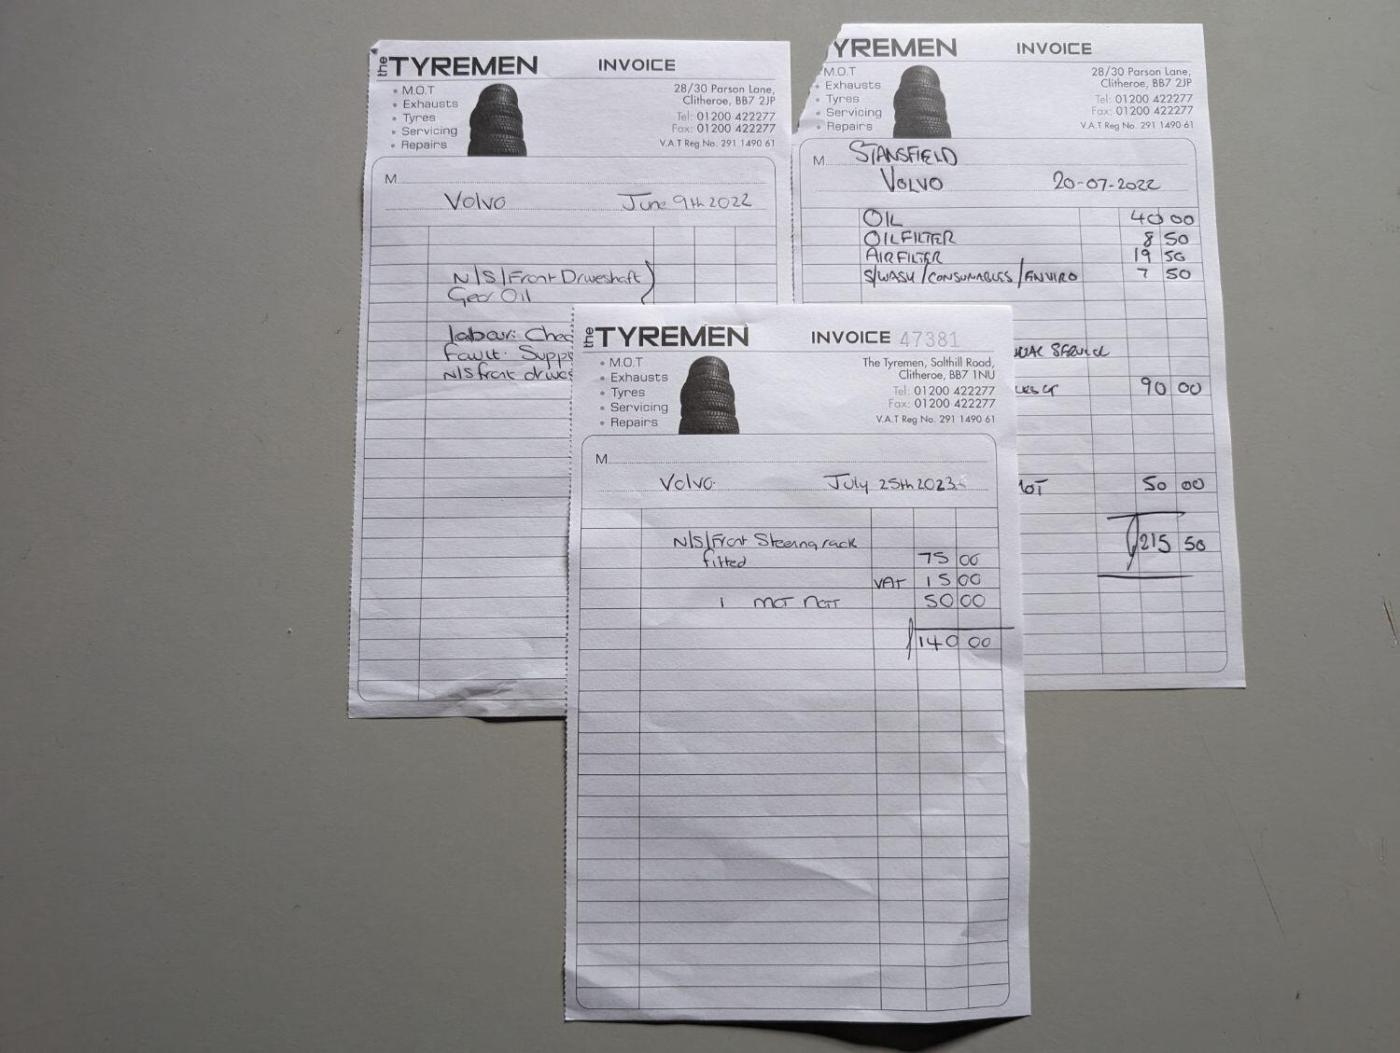 the TYREMEN INVOICE
• M.O.T
• Exhausts
• Tyres
• Servicing
• Repairs
28/30 Parson Lane,
Clitheroe, BB7 2JP
Tel: 01200 422277
Fax: 01200 422277
V.A.T Reg No. 291 1490 61
M
Volvo June 9th 2022
N/S/Front Driveshaft
Gear Oil
labour: Chec
Fault. Supp
N/S front drives
YREMEN INVOICE
M.O.T
• Exhausts
• Tyres
• Servicing
• Repairs
28/30 Parson Lane,
Clitheroe, BB7 2JP
Tel: 01200 422277
Fax: 01200 422277
V.A.T Reg No. 291 1490 61
M STANSFIELD
VOLVO 20-07-2022
OIL 40 00
OILFILTER 8 50
AIRFILTER 19 50
S/WASH/CONSUMABLES/ENVIRO 7 50
SERVICE
90 00
MOT 50 00
£215 50
the TYREMEN INVOICE 47381
• M.O.T
• Exhausts
• Tyres
• Servicing
• Repairs
The Tyremen, Salthill Road,
Clitheroe, BB7 1NU
Tel: 01200 422277
Fax: 01200 422277
V.A.T Reg No. 291 1490 61
M
Volvo. July 25th 2023
N/S/Front Steering rack
fitted 75 00
VAT 15 00
1 MOT 50 00
£140 00